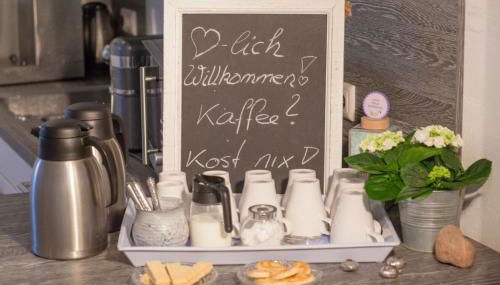 ♡-lich
Willkommen!
Kaffee?
Kost nix :D